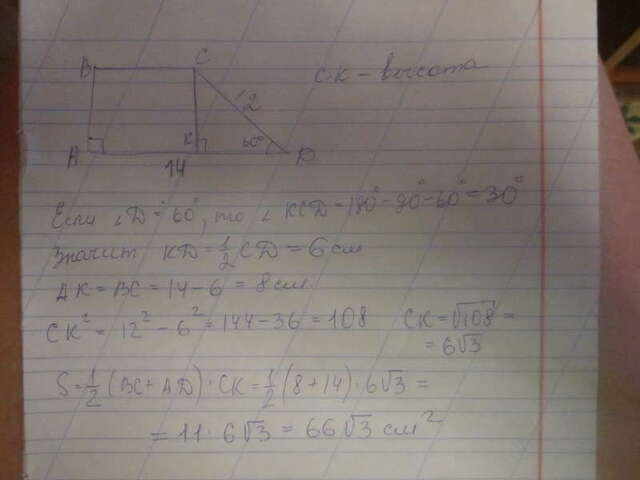 B C
СК - высота
12
60°
A K D
14
Если ∠D = 60°, то ∠KCD = 180° - 90° - 60° = 30°
Значит KD = 1/2 CD = 6 см
AK = BC = 14 - 6 = 8 см.
CK² = 12² - 6² = 144 - 36 = 108 CK = √108 =
= 6√3
S = 1/2 (BC + AD) · CK = 1/2 (8 + 14) · 6√3 =
= 11 · 6√3 = 66√3 см²